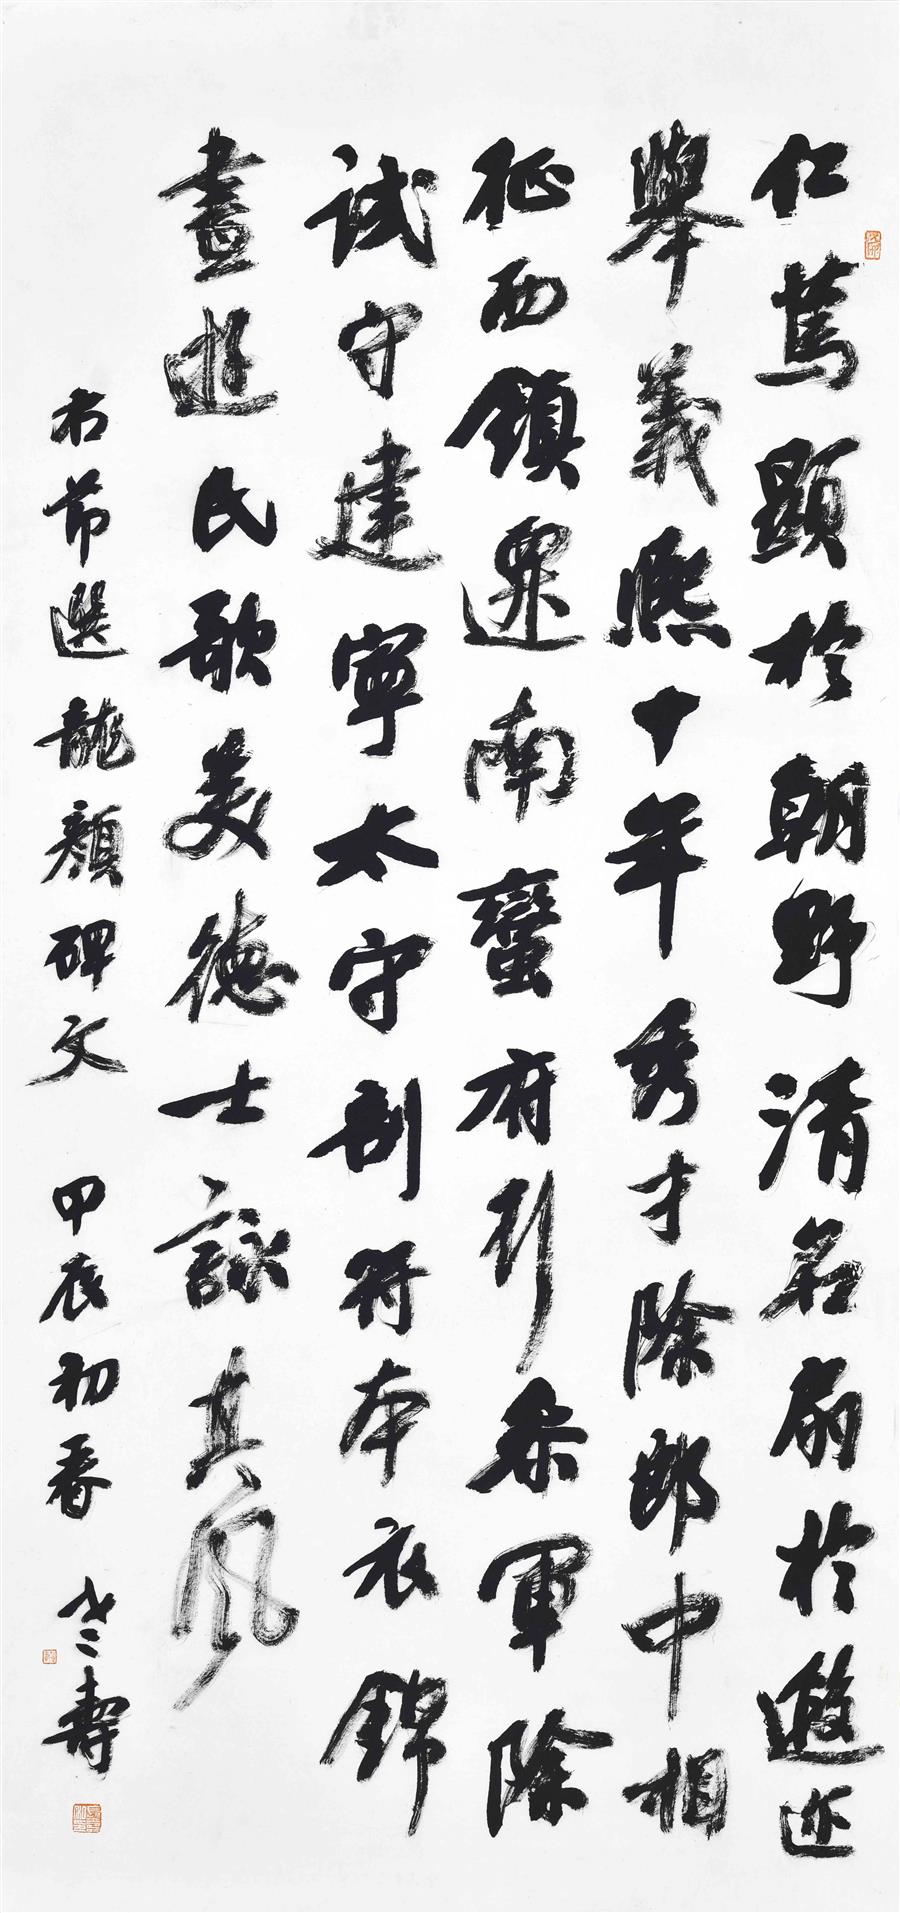 仁篤顯於朝野清名扇於遐迩
舉義熙十年秀才除郎中相
征西鎮遷南蠻府行叅軍除
試守建寧太守剖符本衣錦
晝遊民歌美德士詠其風
右節選龍顏碑文 甲辰初春 壽